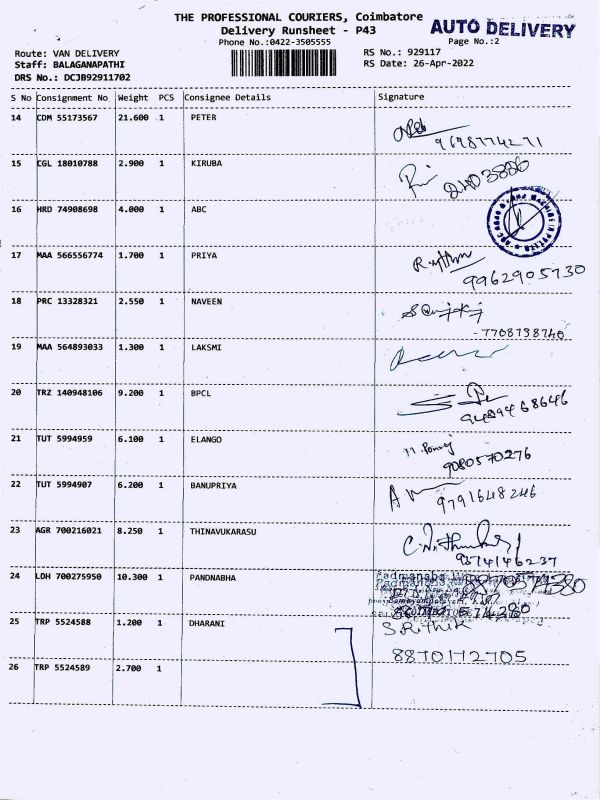 THE PROFESSIONAL COURIERS, Coimbatore
Delivery Runsheet - P43
AUTO DELIVERY
Phone No.:0422-3505555
Page No.:2
Route: VAN DELIVERY
RS No.: 929117
Staff: BALAGANAPATHI
RS Date: 26-Apr-2022
DRS No.: DCJB92911702
S No Consignment No Weight PCS Consignee Details Signature
14 CDM 55173567 21.600 1 PETER
9698774271
15 CGL 18010788 2.900 1 KIRUBA
16 HRD 74908698 4.000 1 ABC
17 MAA 566556774 1.700 1 PRIYA
9962905730
18 PRC 13328321 2.550 1 NAVEEN
-7708738740
19 MAA 564893033 1.300 1 LAKSMI
20 TRZ 140948106 9.200 1 BPCL
9489468646
21 TUT 5994959 6.100 1 ELANGO
9080570276
22 TUT 5994907 6.200 1 BANUPRIYA
9791648246
23 AGR 700216021 8.250 1 THINAVUKARASU
9374146237
24 LDH 700275950 10.300 1 PANDNABHA
25 TRP 5524588 1.200 1 DHARANI
S.Rithik
8870172705
26 TRP 5524589 2.700 1